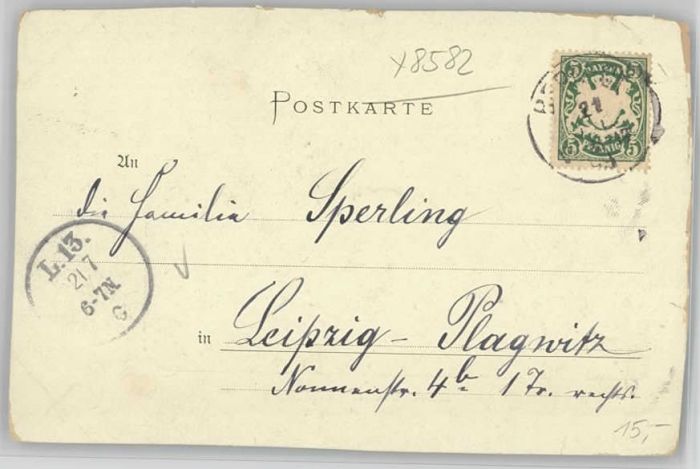 x8582
POSTKARTE
BAYERN
5 5
21
PFENNIG
5 5
An
die Familie Sperling
L.13.
21 7
6-7N
C
in Leipzig - Plagwitz
Nonnenstr. 4b 1 Tr. rechts.
15,-